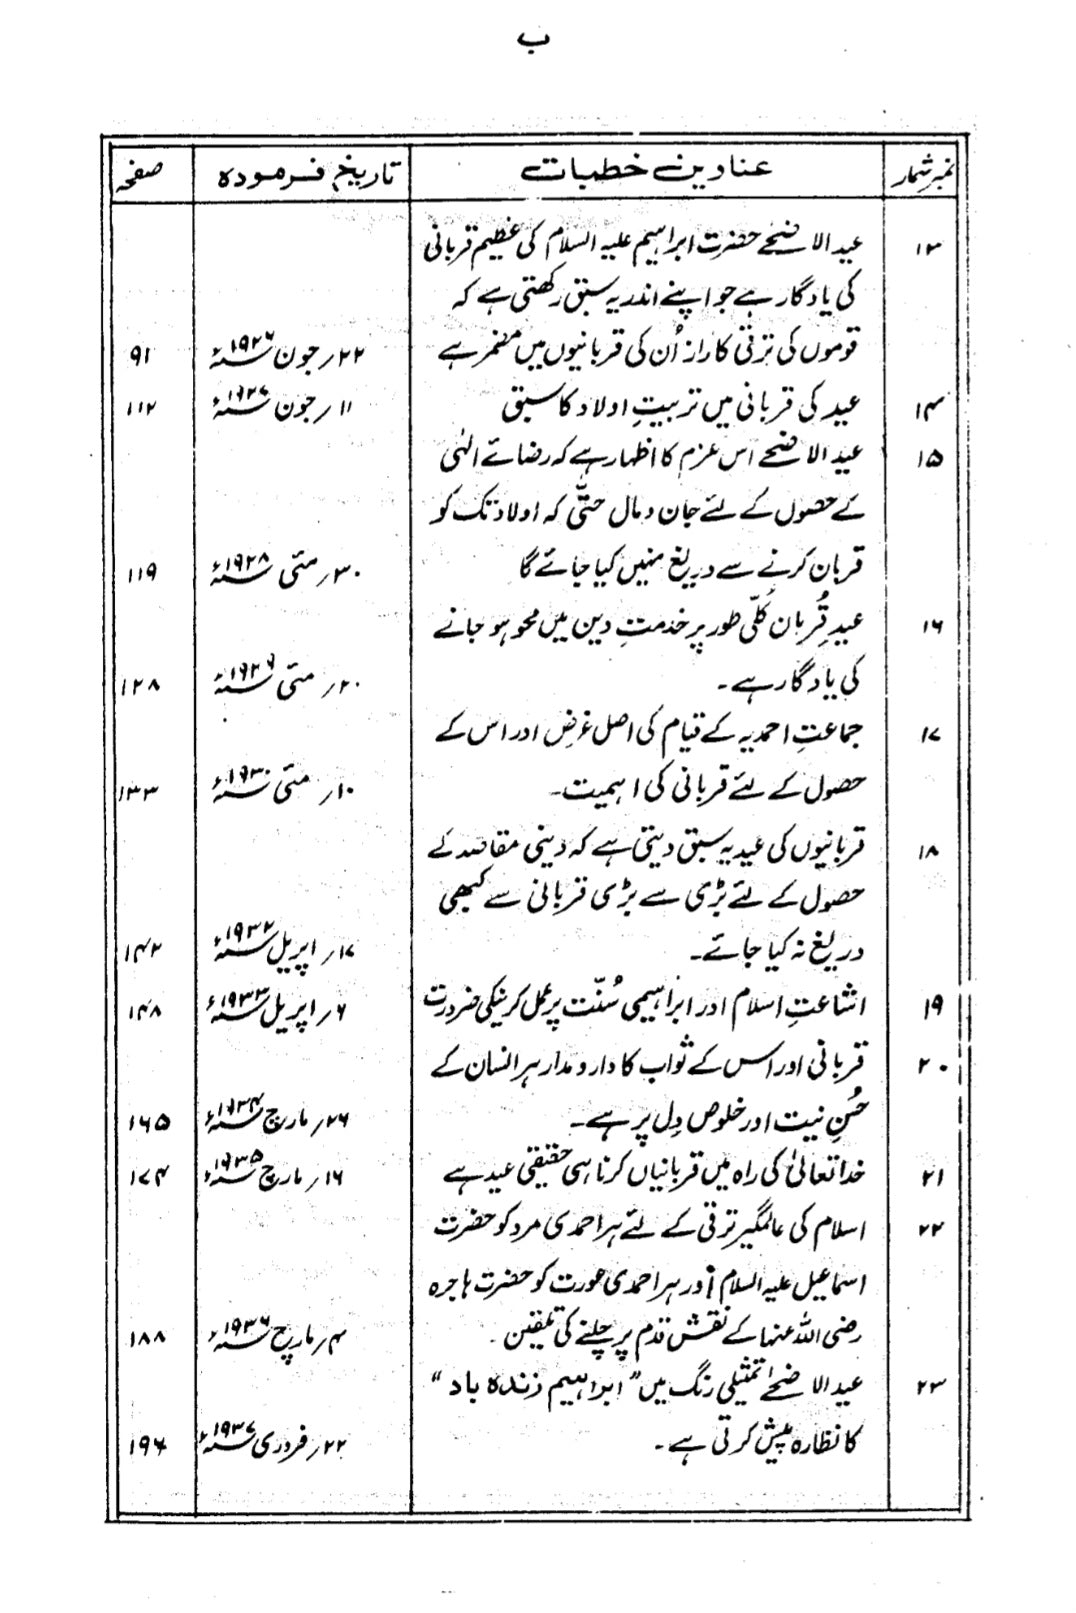 ب
نمبر شمار عناوین خطبات تاریخ فرمودہ صفحہ
۱۳ عید الاضحےٰ حضرت ابراہیم علیہ السلام کی عظیم قربانی
کی یادگار ہے جو اپنے اندر یہ سبق رکھتی ہے کہ
قوموں کی ترقی کا راز اُن کی قربانیوں میں مضمر ہے ۲۲؍ جون ۱۹۲۶ء ۹۱
۱۴ عید کی قربانی میں تربیتِ اولاد کا سبق ۱۱؍ جون ۱۹۲۷ء ۱۱۲
۱۵ عید الاضحےٰ اس عزم کا اظہار ہے کہ رضائے الٰہی
کے حصول کے لئے جان و مال حتّٰی کہ اولاد تک کو
قربان کرنے سے دریغ نہیں کیا جائے گا ۳۰؍ مئی ۱۹۲۸ء ۱۱۹
۱۶ عیدِ قُربان کُلّی طور پر خدمتِ دین میں محو ہو جانے
کی یادگار ہے۔ ۲۰؍ مئی ۱۹۲۹ء ۱۲۸
۱۷ جماعتِ احمدیہ کے قیام کی اصل غرض اور اس کے
حصول کے لئے قربانی کی اہمیت۔ ۱۰؍ مئی ۱۹۳۰ء ۱۳۳
۱۸ قربانیوں کی عید یہ سبق دیتی ہے کہ دینی مقاصد کے
حصول کے لئے بڑی سے بڑی قربانی سے کبھی
دریغ نہ کیا جائے۔ ۱۷؍ اپریل ۱۹۳۲ء ۱۴۲
۱۹ اشاعتِ اسلام اور ابراہیمی سُنّت پر عمل کرنیکی ضرورت ۶؍ اپریل ۱۹۳۳ء ۱۴۸
۲۰ قربانی اور اس کے ثواب کا دارومدار ہر انسان کے
حُسنِ نیت اور خلوص دِل پر ہے۔ ۲۶؍ مارچ ۱۹۳۴ء ۱۶۵
۲۱ خدا تعالیٰ کی راہ میں قربانیاں کرنا ہی حقیقی عید ہے ۱۶؍ مارچ ۱۹۳۵ء ۱۷۴
۲۲ اسلام کی عالمگیر ترقی کے لئے ہر احمدی مرد کو حضرت
اسماعیل علیہ السلام اور ہر احمدی عورت کو حضرت ہاجرہ
رضی اللہ عنہا کے نقش قدم پر چلنے کی تلقین۔ ۴؍ مارچ ۱۹۳۶ء ۱۸۸
۲۳ عید الاضحےٰ تمثیلی رنگ میں "ابراہیم زندہ باد"
کا نظارہ پیش کرتی ہے۔ ۲۲؍ فروری ۱۹۳۷ء ۱۹۶